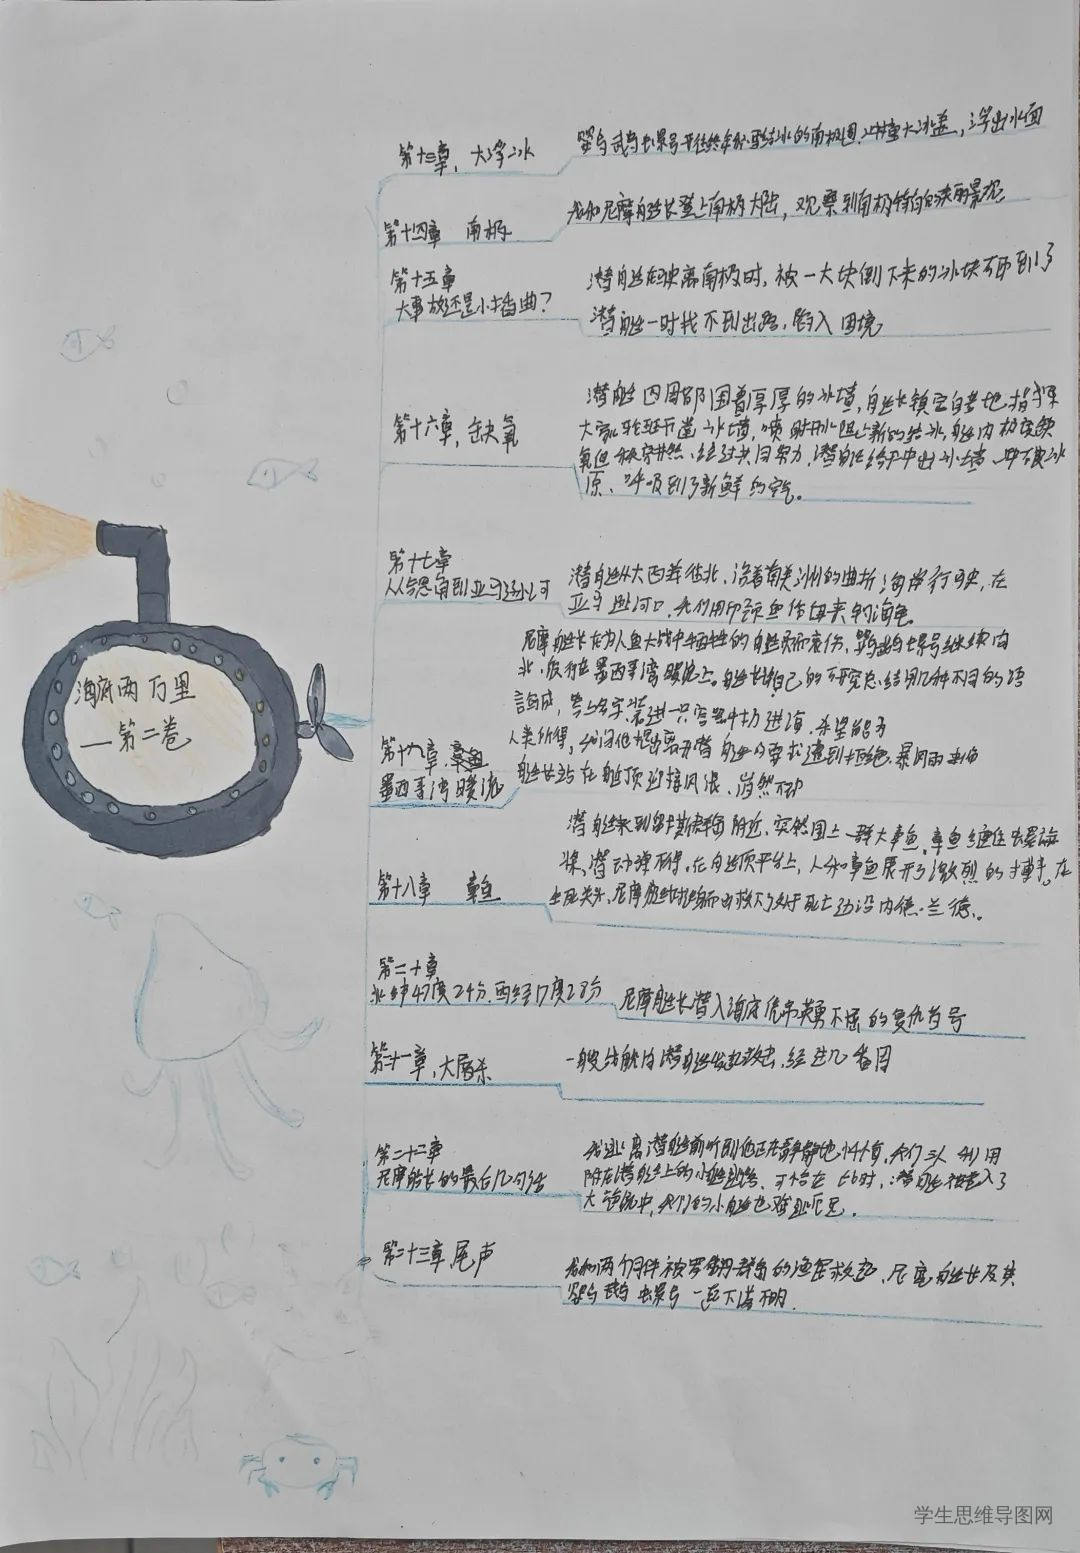 海底两万里
—第二卷
第十三章，大浮冰
鹦鹉螺号
的南极圈，冲撞大冰盖，浮出水面
第十四章 南极
我和尼摩船长登上南极大陆，观察到南极特有的美丽景况
第十五章
大事故还是小插曲？
潜船在驶离南极时，被一大块倒下来的冰块砸到了
潜船一时找不到出路，陷入困境
第十六章，缺氧
潜艇四周都围着厚厚的冰墙，船长镇定自若地指挥
大家轮班开凿冰墙，喷射开水阻止新的结冰，船内极度缺
氧但秩序井然，经过共同努力，潜船终于冲出冰墙
原、呼吸到了新鲜的空气。
第十七章
从合恩角到亚马逊河
潜船从大西洋往北，沿着南美洲的曲折海岸行驶，在
亚马逊河口，我们用印颈鱼作饵来钓海龟
第十九章，章鱼
墨西哥湾暖流
尼摩船长在为人鱼大战中牺牲的船员而哀伤，鹦鹉螺号继续向
北，航行在墨西哥湾暖流上。船长将自己的研究总结用几种不同的语
言写成，签上名字，装进一只密器中扔进海，希望能为
人类所得，
船长站在船顶迎接风浪、岿然不动
第十八章 章鱼
潜船来到留卡斯群岛附近，突然围上一群大章鱼，章鱼缠住
桨，潜动弹不得。在船顶平台上，人和章鱼展开了激烈的搏斗。在
生死关头，尼摩船长
内德·兰德。
第二十章
北纬47度24分，西经17度28分
尼摩船长潜入海底凭吊英勇不屈的复仇者号
第二十一章，大屠杀
一艘战舰向潜船发起攻击，经过几番周
第二十二章
尼摩船长的最后几句话
我逃离潜船前听到他正在静静地忏悔，我们三人利用
附在潜艇上的小船逃跑。可恰在此时，潜船被卷入了
大漩涡中，我们的小船也难逃厄运。
第二十三章 尾声
我和两个同伴被罗佛丹群岛的渔民救起，尼摩船长及其
鹦鹉螺号一直下落不明
学生思维导图网